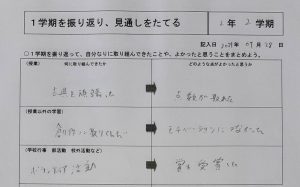 1学期を振り返り、見通しをたてる
1年 2学期
記入日 2021年 09月 28日
○1学期を振り返って、自分なりに取り組んできたことや、よかったと思うことをまとめよう。
(授業) 何に取り組んできたか どのような点がよかったと思うか
古典を頑張った 点数が取れた
(授業以外の学習)
創作に取りくんだ モチベーションにつながった
(学校行事 部活動 校外活動など)
ボランティア活動 賞を受賞した